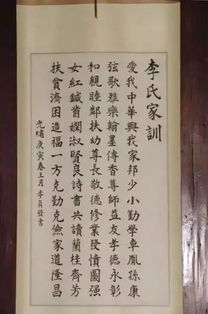 李氏家訓
愛我中華興我家邦少小勤學車胤孫康
弦歌雅樂翰墨傳香尊師益友孝德永彰
和親睦鄰扶幼尊長敬德修業發憤圖強
女紅鍼黹嫻淑賢良詩書共讀蘭桂齊芳
扶貧濟困造福一方克勤克儉家道隆昌
庚寅春月李書